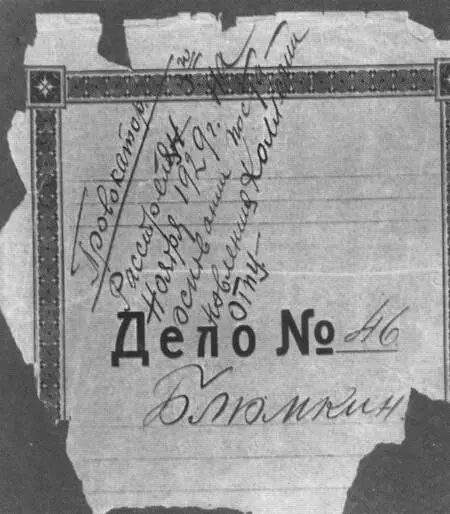 Провокатор
Расстрелян 3го
Ноября 1929г. на
основании поста-
новления Коллегии
ОГПУ –
Дело № 46
Блюмкин